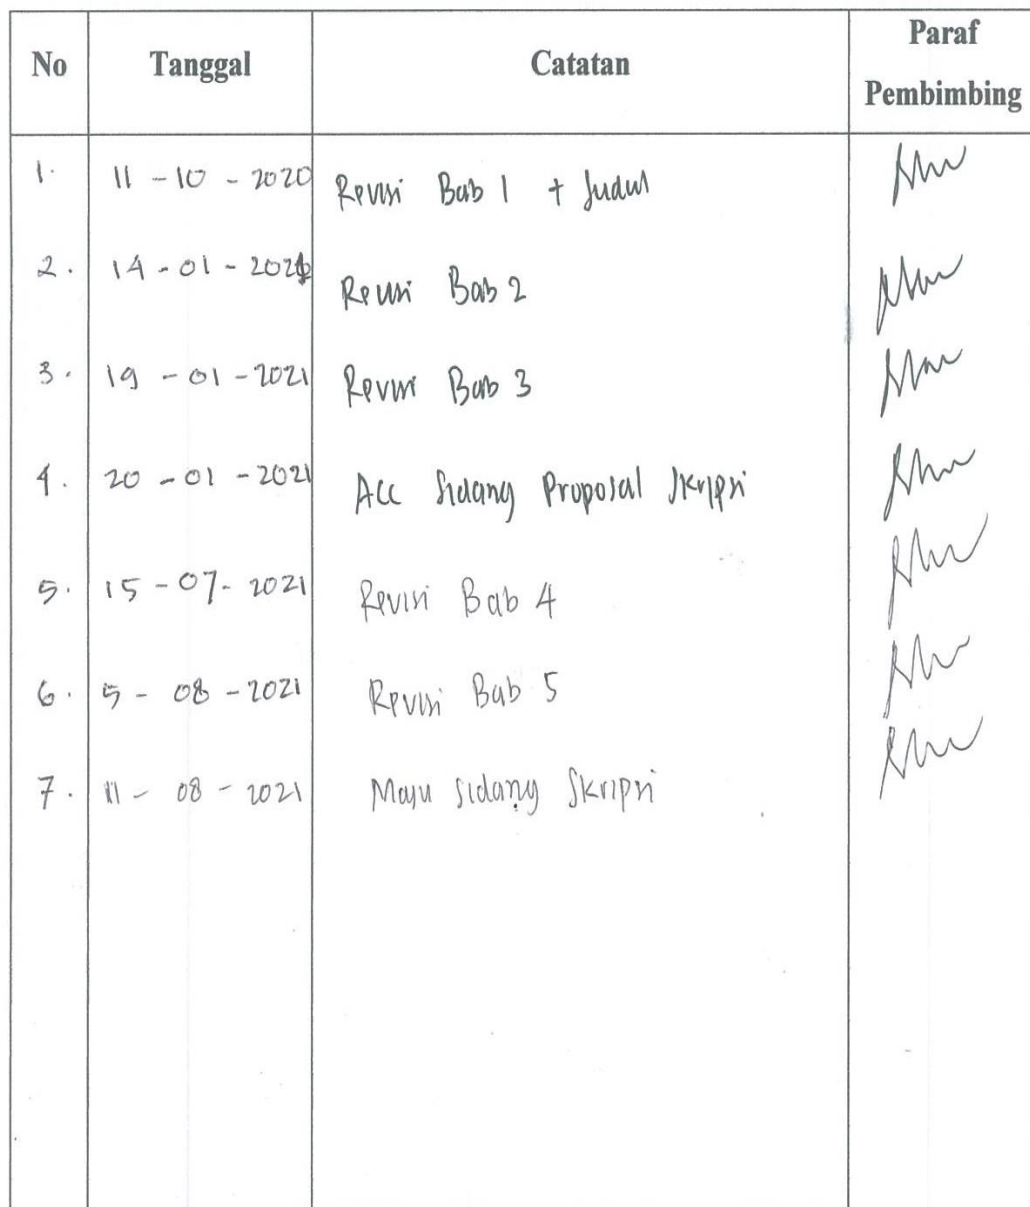 No Tanggal Catatan Paraf Pembimbing
1. 11-10-2020 Revisi Bab 1 + Judul
2. 14-01-2021 Revisi Bab 2
3. 19-01-2021 Revisi Bab 3
4. 20-01-2021 Acc Sidang Proposal Skripsi
5. 15-07-2021 Revisi Bab 4
6. 5-08-2021 Revisi Bab 5
7. 11-08-2021 Maju Sidang Skripsi